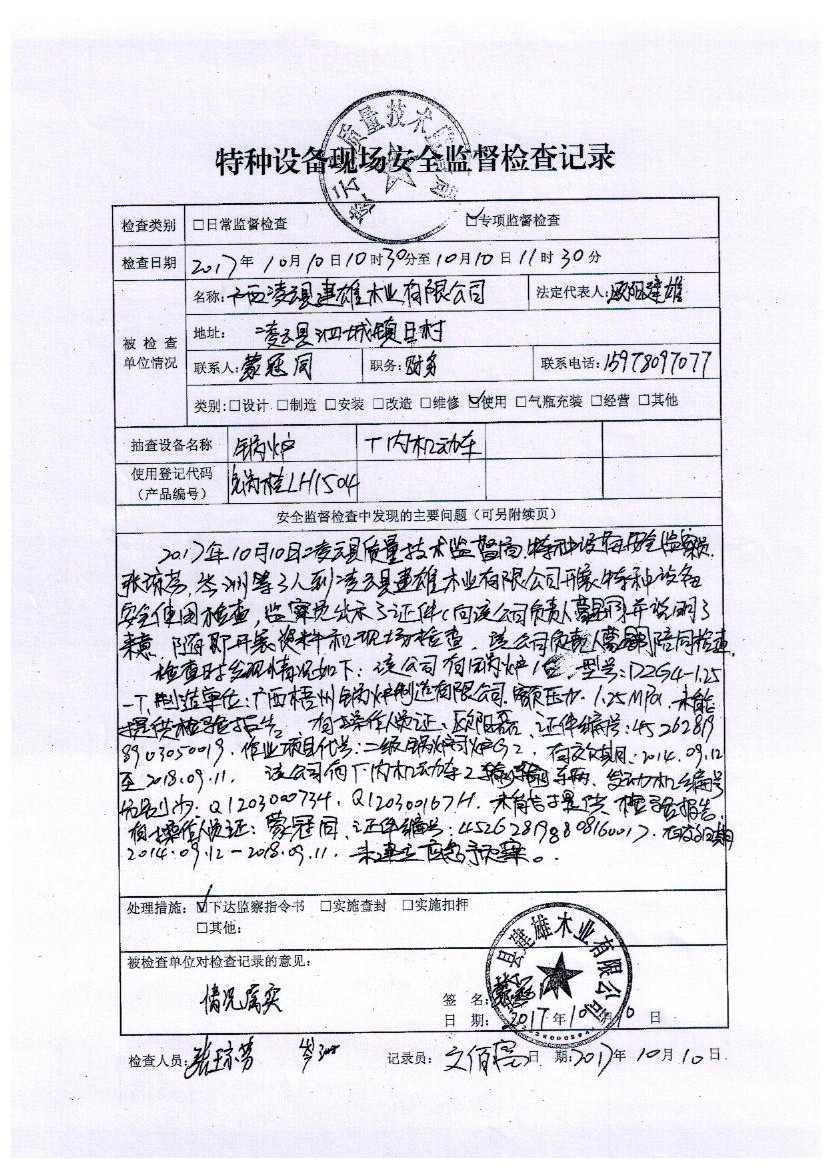 特种设备现场安全监督检查记录
检查类别 □日常监督检查 ☑专项监督检查
检查日期 2017年10月10日10时30分至10月10日11时30分
被检查单位情况
名称：广西凌云县建雄木业有限公司 法定代表人：欧阳建雄
地址：凌云县泗城镇 村
联系人：蒙冠同 职务：财务 联系电话：15978097077
类别：□设计 □制造 □安装 □改造 □维修 ☑使用 □气瓶充装 □经营 □其他
抽查设备名称 锅炉 厂内机动车
使用登记代码（产品编号） 锅桂LH1504
安全监督检查中发现的主要问题（可另附续页）
2017年10月10日凌云县质量技术监督局特种设备安全监察员
张琼芳，岑洲等3人到凌云县建雄木业有限公司开展特种设备
安全使用检查，监察员出示了证件，向该公司负责人蒙冠同并说明了
来意，随即开展资料和现场检查，该公司负责人蒙冠同陪同检查，
检查时发现情况如下：该公司有锅炉1台，型号：DZG4-1.25
-T，制造单位：广西梧州锅炉制造有限公司，额压力1.25MPa，未能
提供检验报告。有1操作人员证、欧阳 、证件编号：45262819
8903050019，作业项目代号：二级锅炉司炉G2，有效日期：2014.09.12
至2018.09.11。该公司有厂内机动车2辆 车辆，发动机编号
分别为：Q120300734，Q12030167H，未能提供检验报告，
有1操作人员证：蒙冠同，证件编号：452628198808160017，有效日期
2014.09.12-2018.09.11。未建立应急预案。
处理措施：☑下达监察指令书 □实施查封 □实施扣押
□其他：
被检查单位对检查记录的意见：
情况属实
签 名：蒙冠同
日 期：2017年10月10日
县建雄木业有限公司
检查人员：张琼芳 岑洲 记录员：文佰亮 日 期：2017年10月10日